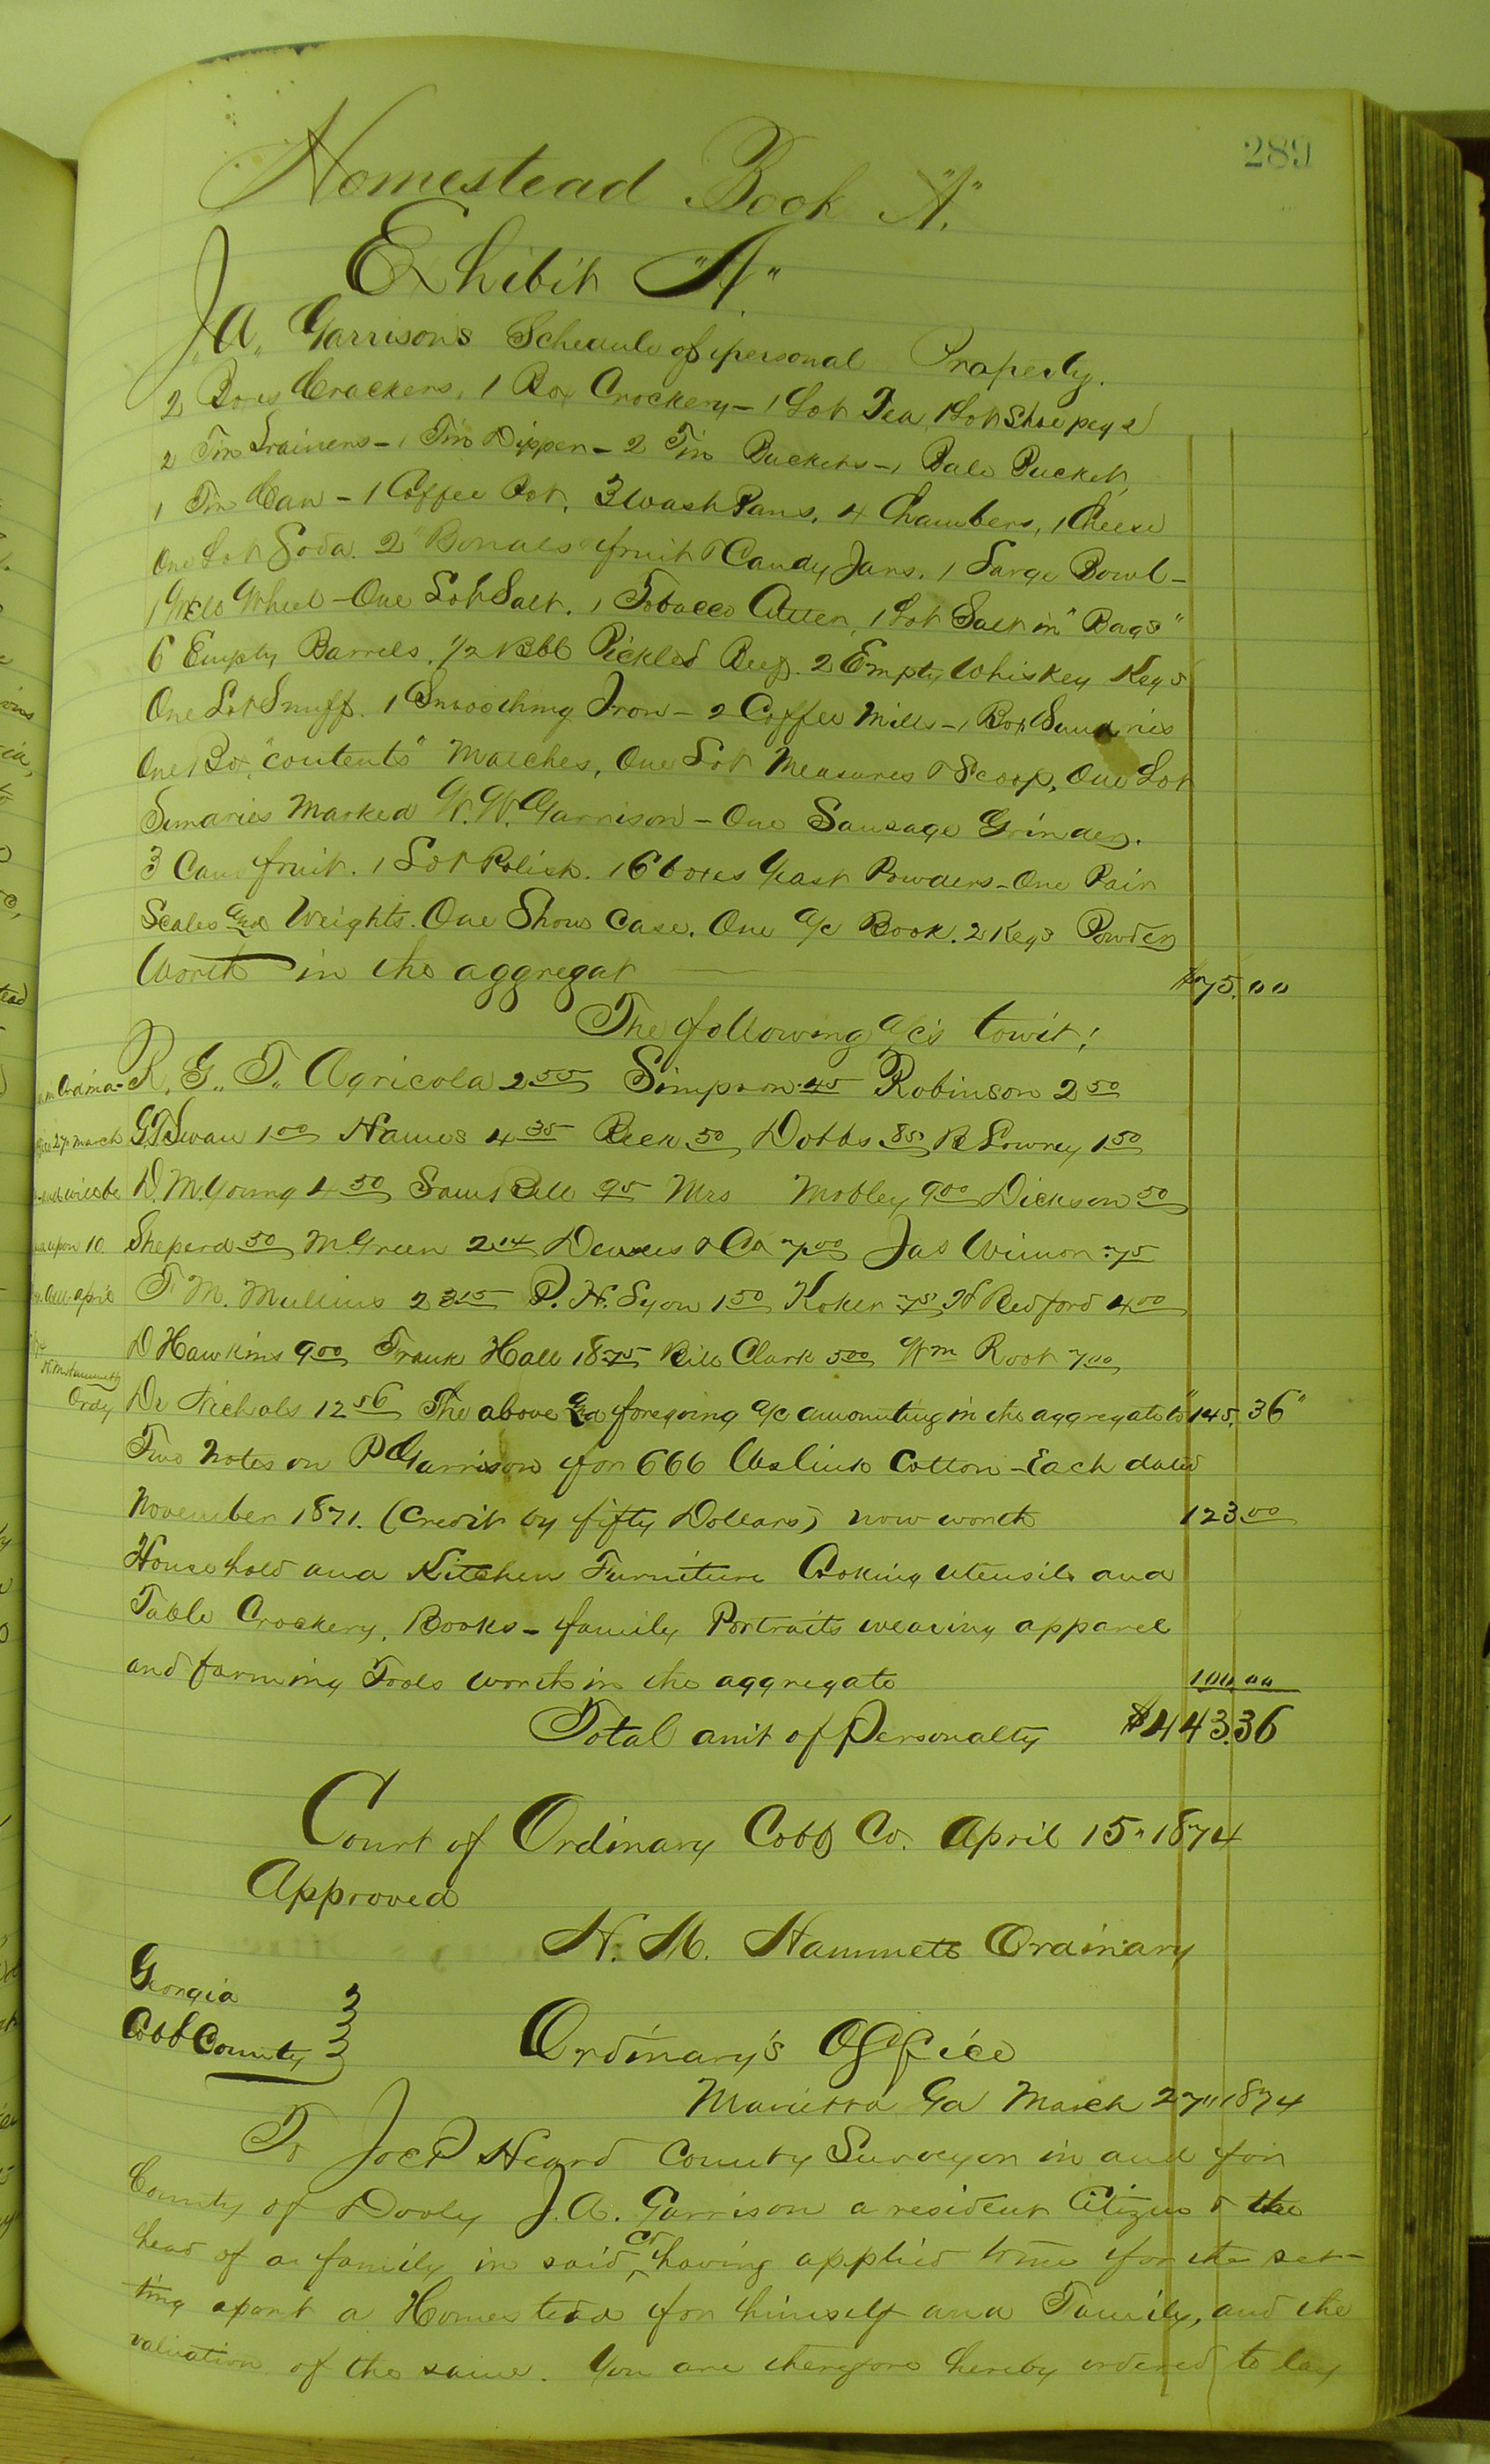 289
Homestead Book "A"
Exhibit "A"
J. A. Garrisons Schedule of personal Property.
2 Boxes Crackers, 1 Box Crockery - 1 Lot Tea 1 Lot Shoe pegs
2 Tin Strainers - 1 Tin Dipper - 2 Tin Buckets - 1 Bale Bucket
1 Tin Can - 1 Coffee Pot, 3 Wash Pans, 4 Chambers, 1 Cheese
One Lot Soda. 2 fruit & Candy Jars, 1 Large Bowl -
1 Wheel - One Lot Salt. 1 Tobacco Cutter, 1 Lot Salt in "Bags"
6 Empty Barrels, 1/2 Bbl Pickled Beef. 2 Empty Whiskey Kegs
One Lot Snuff. 1 Smoothing Iron - 2 Coffee Mills - 1 Box Sundries
One Box "contents" Matches, One Lot Measures & Scoop, One Lot
Sundries Marked W. W. Garrison - One Sausage Grinder.
3 Cans fruit. 1 Lot Polish. 16 boxes Yeast Powders - One Pair
Scales and Weights. One Show Case. One a/c Book. 2 Kegs Powder
Worth in the aggregat $75.00
The following a/c's towit;
R. G. T. Agricola 2 55 Simpson .45 Robinson 2 50
G T Swan 1 00 Hames 4 35 Reek 50 Dobbs 85 R Lowrey 1 50
D. M. Young 4 50 Saml Bell 95 Mrs Mobley 9 00 Dickson 50
Sheperd 50 M. Green 2 14 & Co 7 00 Jas .75
T. M. Mullins 23 15 P. H. Lyon 1 50 Koker 75 H Redford 4 00
D Hawkins 9 00 Frank Hall 18 75 Bill Clark 5 00 Wm Root 7 00
Dr Nichols 12 56 The above and foregoing a/c amounting in the aggregate to "145.36"
Two Notes on P Garrison for 666 lbs lint Cotton - Each dated
November 1871. (Credit by fifty Dollars) now worth 123 00
Household and Kitchen Furniture Cooking utensils and
Table Crockery, Books - family Portraits wearing apparel
and farming Tools worth in the aggregate 100.00
Total amt of Personalty $443.36
Court of Ordinary Cobb Co. April 15" 1874
Approved
H. M. Hammett Ordinary
Georgia
Cobb County
Ordinary's Office
Marietta Ga March 27" 1874
To Joe P Heard County Surveyor in and for
County of Dooly J. A. Garrison a resident Citizen & the
head of a family in said Co having applied to me for the set-
ting apart a Homestead for himself and Family, and the
valuation of the same. You are therefore hereby ordered to lay